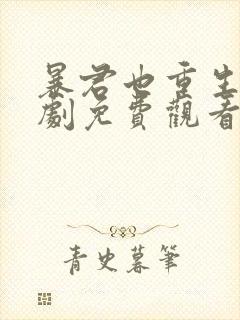 暴君也重生
劇免費觀看
青史暮筆